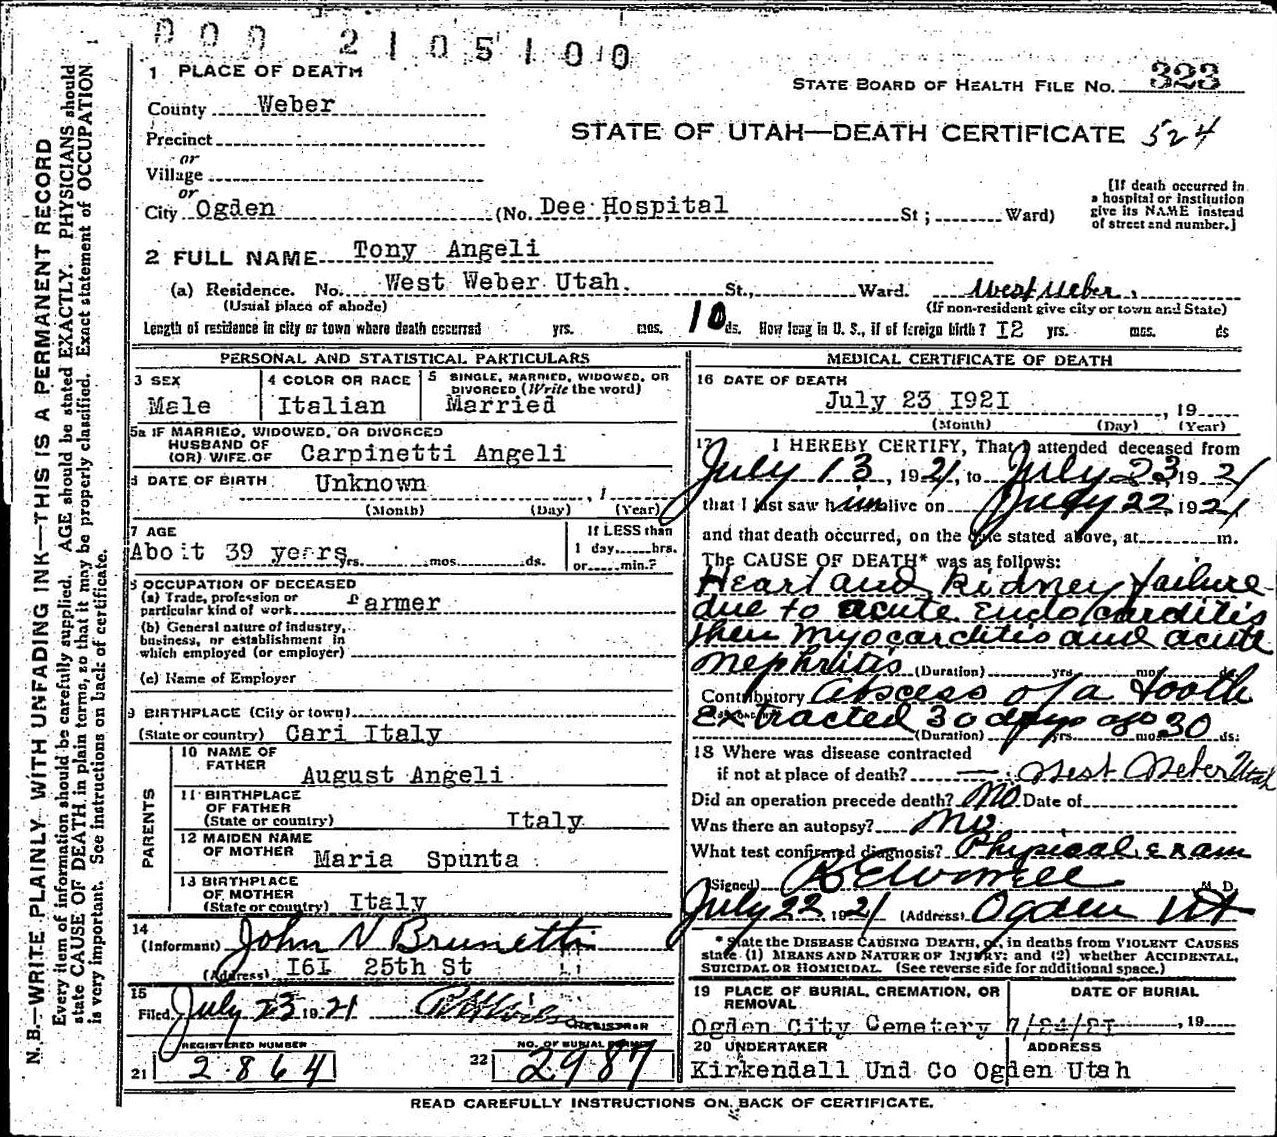 000 2105100
1 PLACE OF DEATH
STATE BOARD OF HEALTH FILE No. 323
County Weber
STATE OF UTAH—DEATH CERTIFICATE 524
Precinct
or
Village
or
City Ogden (No. Dee Hospital St; Ward)
[If death occurred in
a hospital or institution
give its NAME instead
of street and number.]
2 FULL NAME Tony Angeli
(a) Residence. No. West Weber Utah. St., Ward. West Weber.
(Usual place of abode) (If non-resident give city or town and State)
Length of residence in city or town where death occurred yrs. mos. 10 ds. How long in U. S., if of foreign birth? I2 yrs. mos. ds
PERSONAL AND STATISTICAL PARTICULARS
3 SEX
Male
4 COLOR OR RACE
Italian
5 SINGLE, MARRIED, WIDOWED, OR
DIVORCED (Write the word)
Married
5a IF MARRIED, WIDOWED, OR DIVORCED
HUSBAND OF
(OR) WIFE OF Carpinetti Angeli
6 DATE OF BIRTH Unknown
(Month) (Day) (Year)
7 AGE
Abo it 39 years yrs. mos. ds.
If LESS than
1 day hrs.
or min.?
8 OCCUPATION OF DECEASED
(a) Trade, profession or
particular kind of work Farmer
(b) General nature of industry,
business, or establishment in
which employed (or employer)
(c) Name of Employer
9 BIRTHPLACE (City or town)
(State or country) Cari Italy
PARENTS
10 NAME OF
FATHER August Angeli
11 BIRTHPLACE
OF FATHER
(State or country) Italy
12 MAIDEN NAME
OF MOTHER Maria Spunta
13 BIRTHPLACE
OF MOTHER
(State or country) Italy
14
(Informant) John N Brunetti
(Address) I6I 25th St
15
Filed July 23 1921
REGISTRAR
REGISTERED NUMBER
21 2864
NO. OF BURIAL PERMIT
22 2987
MEDICAL CERTIFICATE OF DEATH
16 DATE OF DEATH
July 23 I92I , 19
(Month) (Day) (Year)
17 I HEREBY CERTIFY, That I attended deceased from
July 13, 1921, to July 23, 1921
that I last saw him alive on July 22, 1921,
and that death occurred, on the date stated above, at m.
The CAUSE OF DEATH* was as follows:
Heart and Kidney failure
due to acute Endocarditis
then Myocarditis and acute
nephritis (Duration) yrs mos ds
Contributory Abscess of a tooth
Extracted 30 days ago 30
(Duration) yrs. mos. ds.
18 Where was disease contracted
if not at place of death? — West Weber Utah
Did an operation precede death? No Date of
Was there an autopsy? No
What test confirmed diagnosis? Physical exam
(Signed) M. D.
July 22 1921 (Address) Ogden Ut
* State the DISEASE CAUSING DEATH, or, in deaths from VIOLENT CAUSES
state (1) MEANS AND NATURE OF INJURY; and (2) whether ACCIDENTAL,
SUICIDAL OR HOMICIDAL. (See reverse side for additional space.)
19 PLACE OF BURIAL, CREMATION, OR
REMOVAL
Ogden City Cemetery
DATE OF BURIAL
7/24/2I , 19
20 UNDERTAKER ADDRESS
Kirkendall Und Co Ogden Utah
READ CAREFULLY INSTRUCTIONS ON BACK OF CERTIFICATE.
N. B.—WRITE PLAINLY WITH UNFADING INK—THIS IS A PERMANENT RECORD
Every item of information should be carefully supplied. AGE should be stated EXACTLY. PHYSICIANS should
state CAUSE OF DEATH in plain terms, so that it may be properly classified. Exact statement of OCCUPATION
is very important. See instructions on back of certificate.